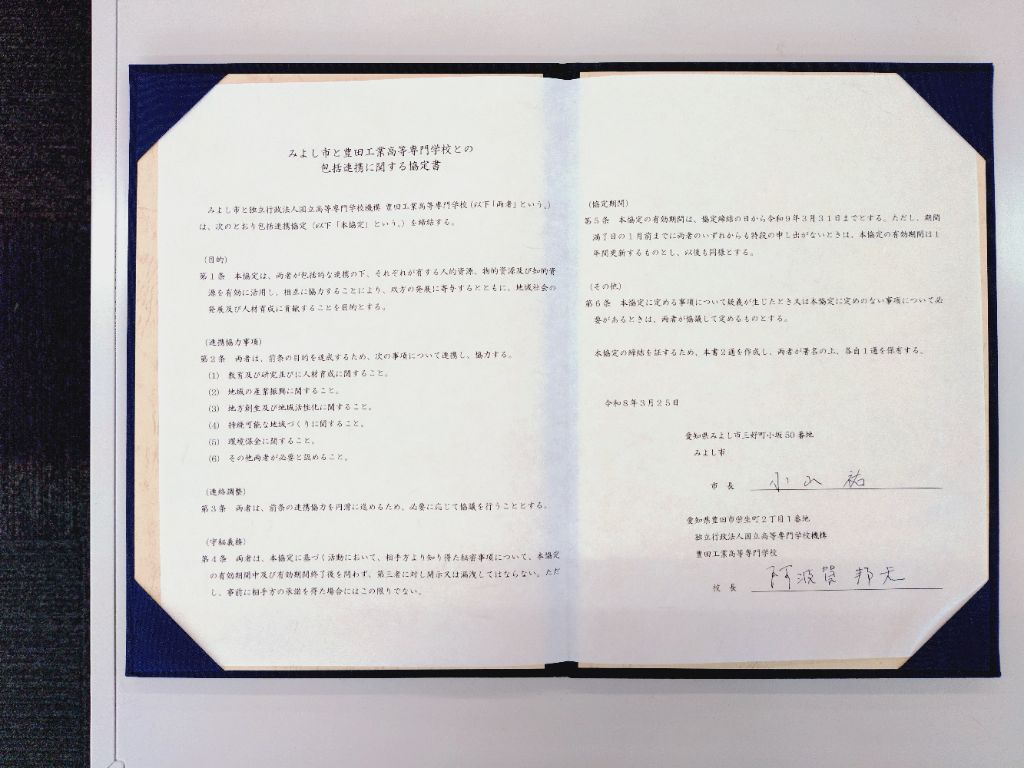 みよし市と豊田工業高等専門学校との
包括連携に関する協定書
みよし市と独立行政法人国立高等専門学校機構 豊田工業高等専門学校（以下「両者」という。）
は、次のとおり包括連携協定（以下「本協定」という。）を締結する。
（目的）
第１条　本協定は、両者が包括的な連携の下、それぞれが有する人的資源、物的資源及び知的資
源を有効に活用し、相互に協力することにより、双方の発展に寄与するとともに、地域社会の
発展及び人材育成に貢献することを目的とする。
（連携協力事項）
第２条　両者は、前条の目的を達成するため、次の事項について連携し、協力する。
(1)　教育及び研究並びに人材育成に関すること。
(2)　地域の産業振興に関すること。
(3)　地方創生及び地域活性化に関すること。
(4)　持続可能な地域づくりに関すること。
(5)　環境保全に関すること。
(6)　その他両者が必要と認めること。
（連絡調整）
第３条　両者は、前条の連携協力を円滑に進めるため、必要に応じて協議を行うこととする。
（守秘義務）
第４条　両者は、本協定に基づく活動において、相手方より知り得た秘密事項について、本協定
の有効期間中及び有効期間終了後を問わず、第三者に対し開示又は漏洩してはならない。ただ
し、事前に相手方の承諾を得た場合にはこの限りでない。
（協定期間）
第５条　本協定の有効期間は、協定締結の日から令和９年３月３１日までとする。ただし、期間
満了日の１月前までに両者のいずれからも特段の申し出がないときは、本協定の有効期間は１
年間更新するものとし、以後も同様とする。
（その他）
第６条　本協定に定める事項について疑義が生じたとき又は本協定に定めのない事項について必
要があるときは、両者が協議して定めるものとする。
本協定の締結を証するため、本書２通を作成し、両者が署名の上、各自１通を保有する。
令和８年３月２５日
愛知県みよし市三好町小坂 50 番地
みよし市
市　長　小山　祐
愛知県豊田市栄生町２丁目１番地
独立行政法人国立高等専門学校機構
豊田工業高等専門学校
校　長　阿波賀　邦夫